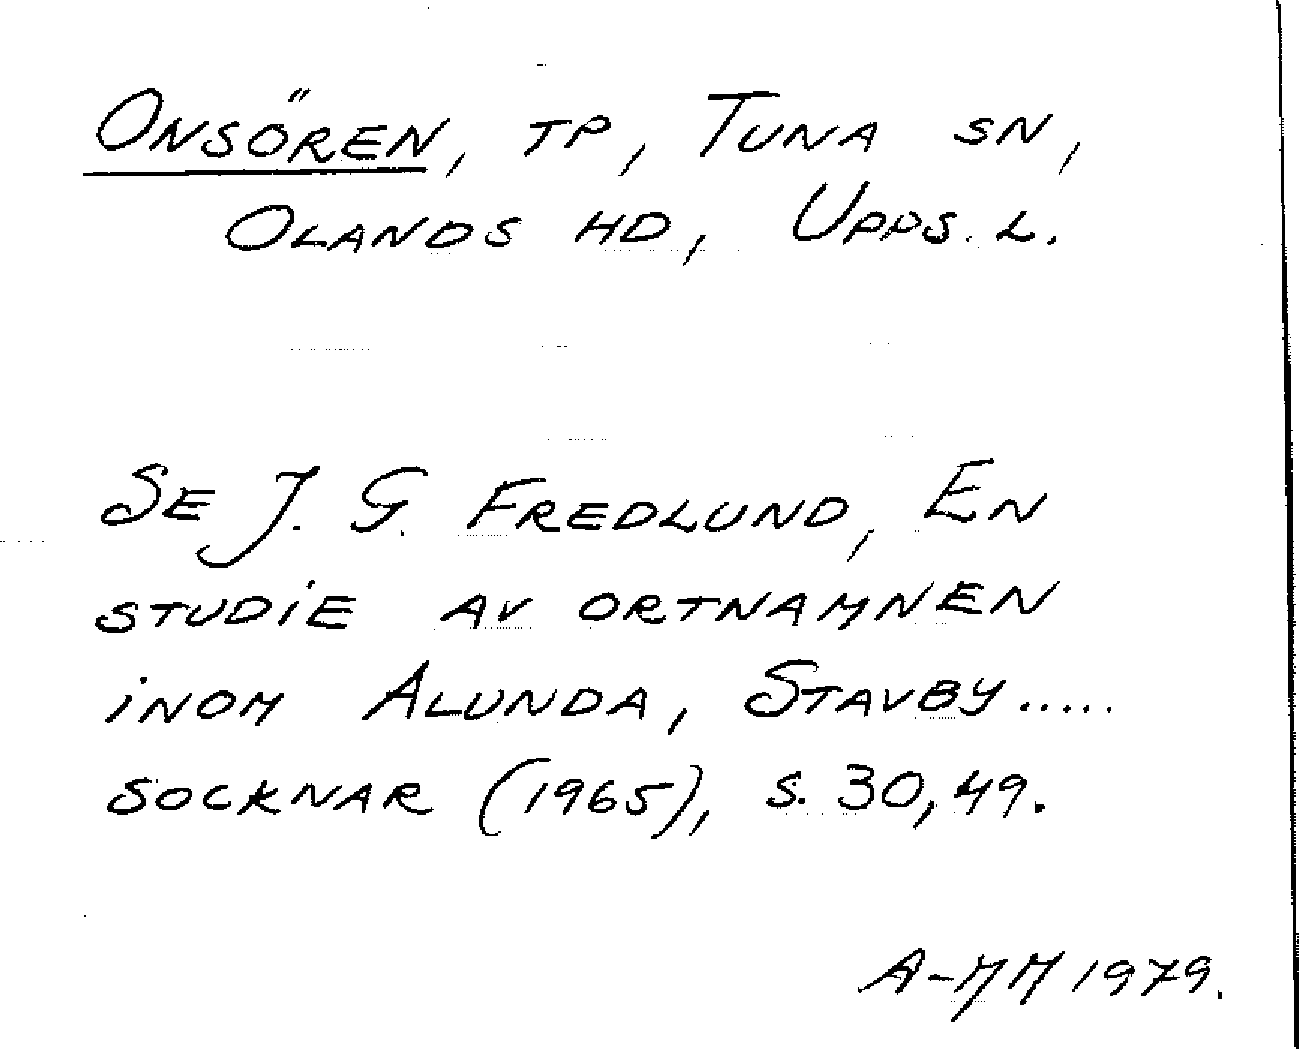 ONSÖREN, TP, TUNA SN,
OLANDS HD, UPPS. L.
SE J. G. FREDLUND, EN
STUDIE AV ORTNAMNEN
INOM ALUNDA, STAVBY.....
SOCKNAR (1965), S. 30, 49.
A-MM 1979.